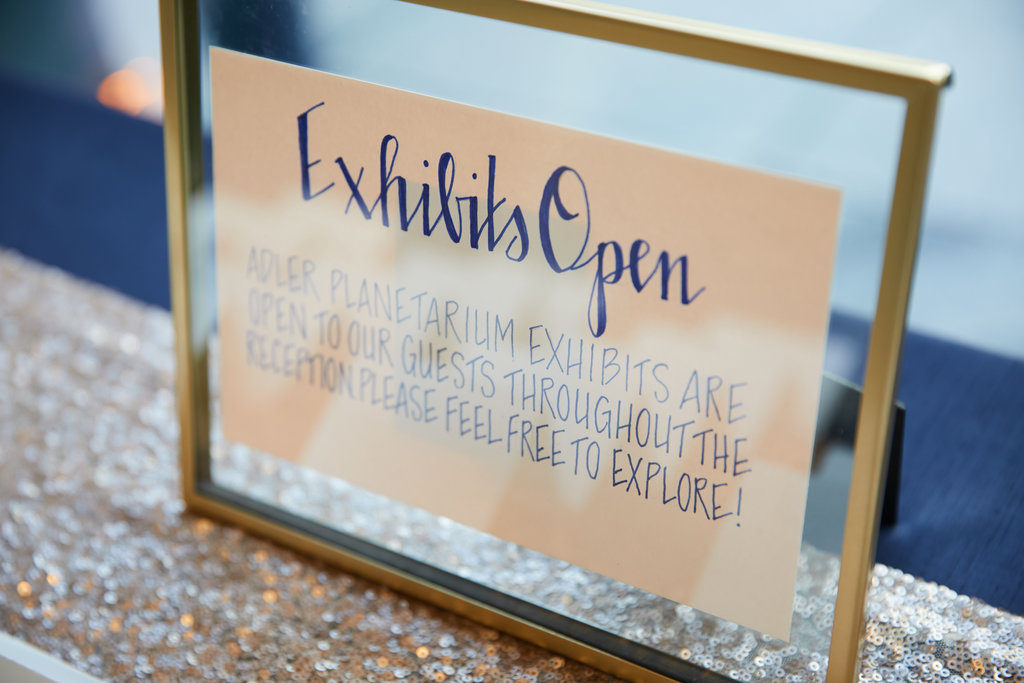 Exhibits Open
ADLER PLANETARIUM EXHIBITS ARE
OPEN TO OUR GUESTS THROUGHOUT THE
RECEPTION. PLEASE FEEL FREE TO EXPLORE!